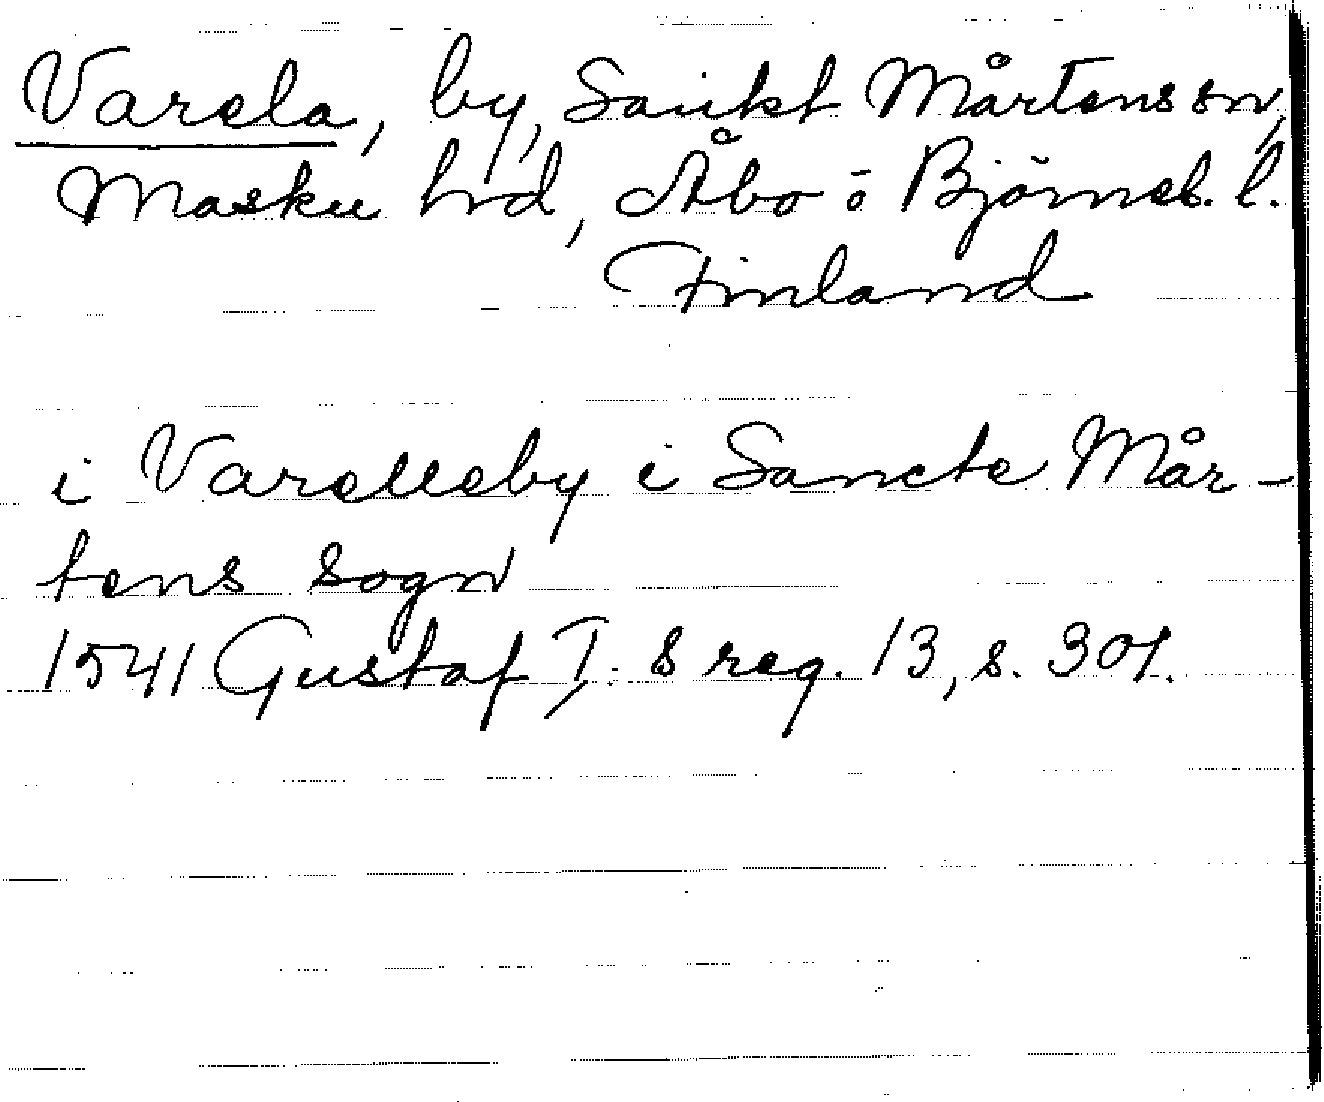 Varela, by, Sankt Mårtens sn,
Masku hrd, Åbo o Björneb. l.
Finland
i Varelleby i Sancte Mår-
tens sogn
1541 Gustaf I:s reg. 13, s. 301.